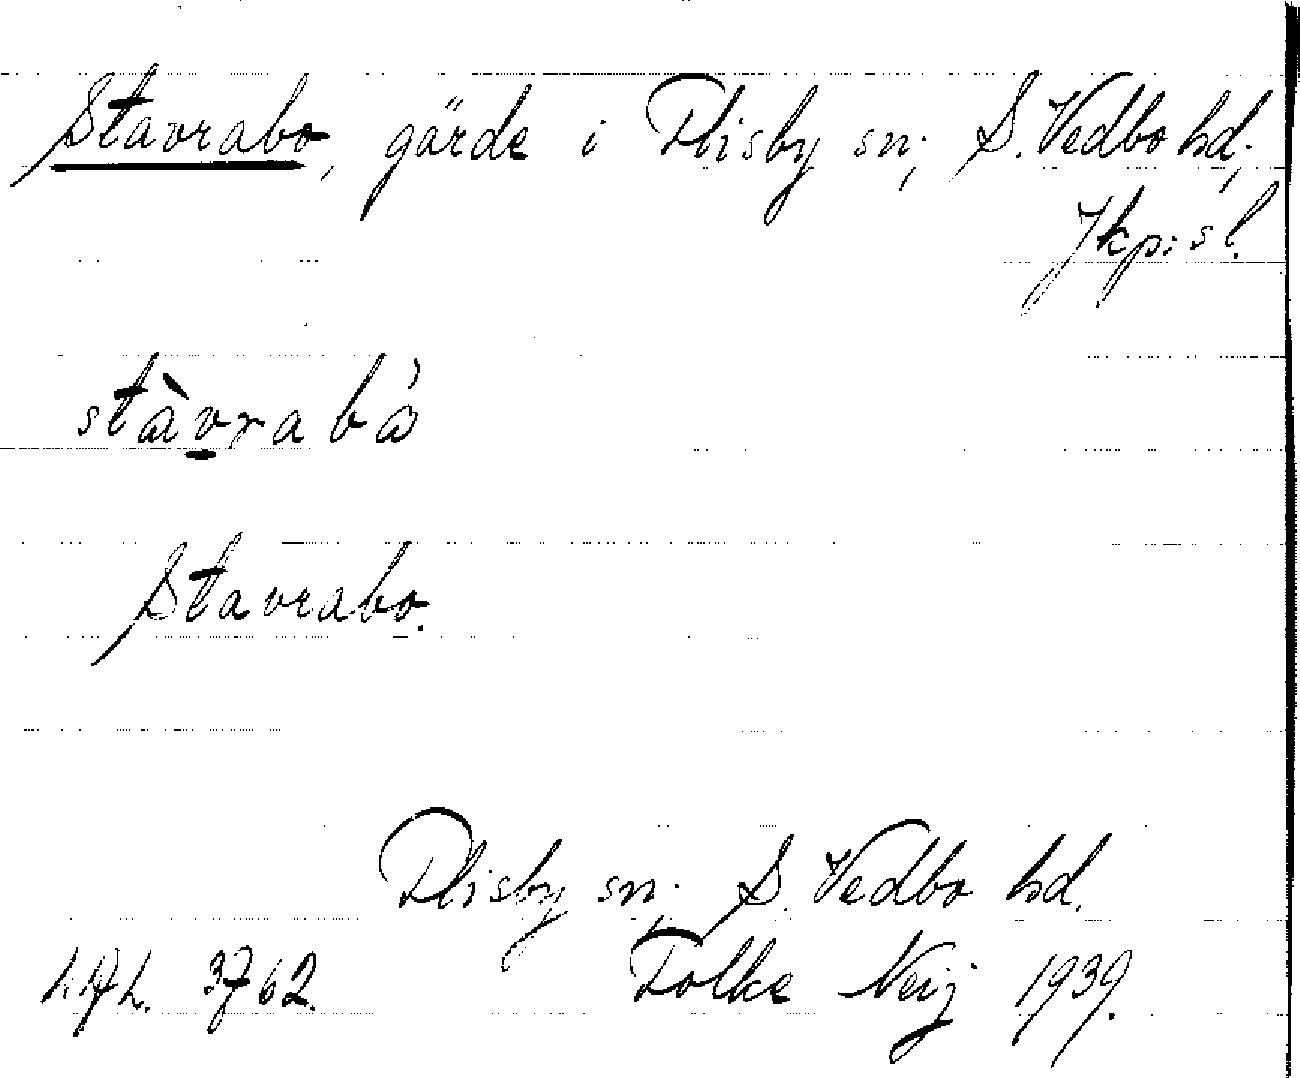 Stavrabo, gärde i Flisby sn; S. Vedbo hd;
Jkp:s l.
stàvrabó
Stavrabo.
Flisby sn; S. Vedbo hd.
3762. Folke Neij 1939.